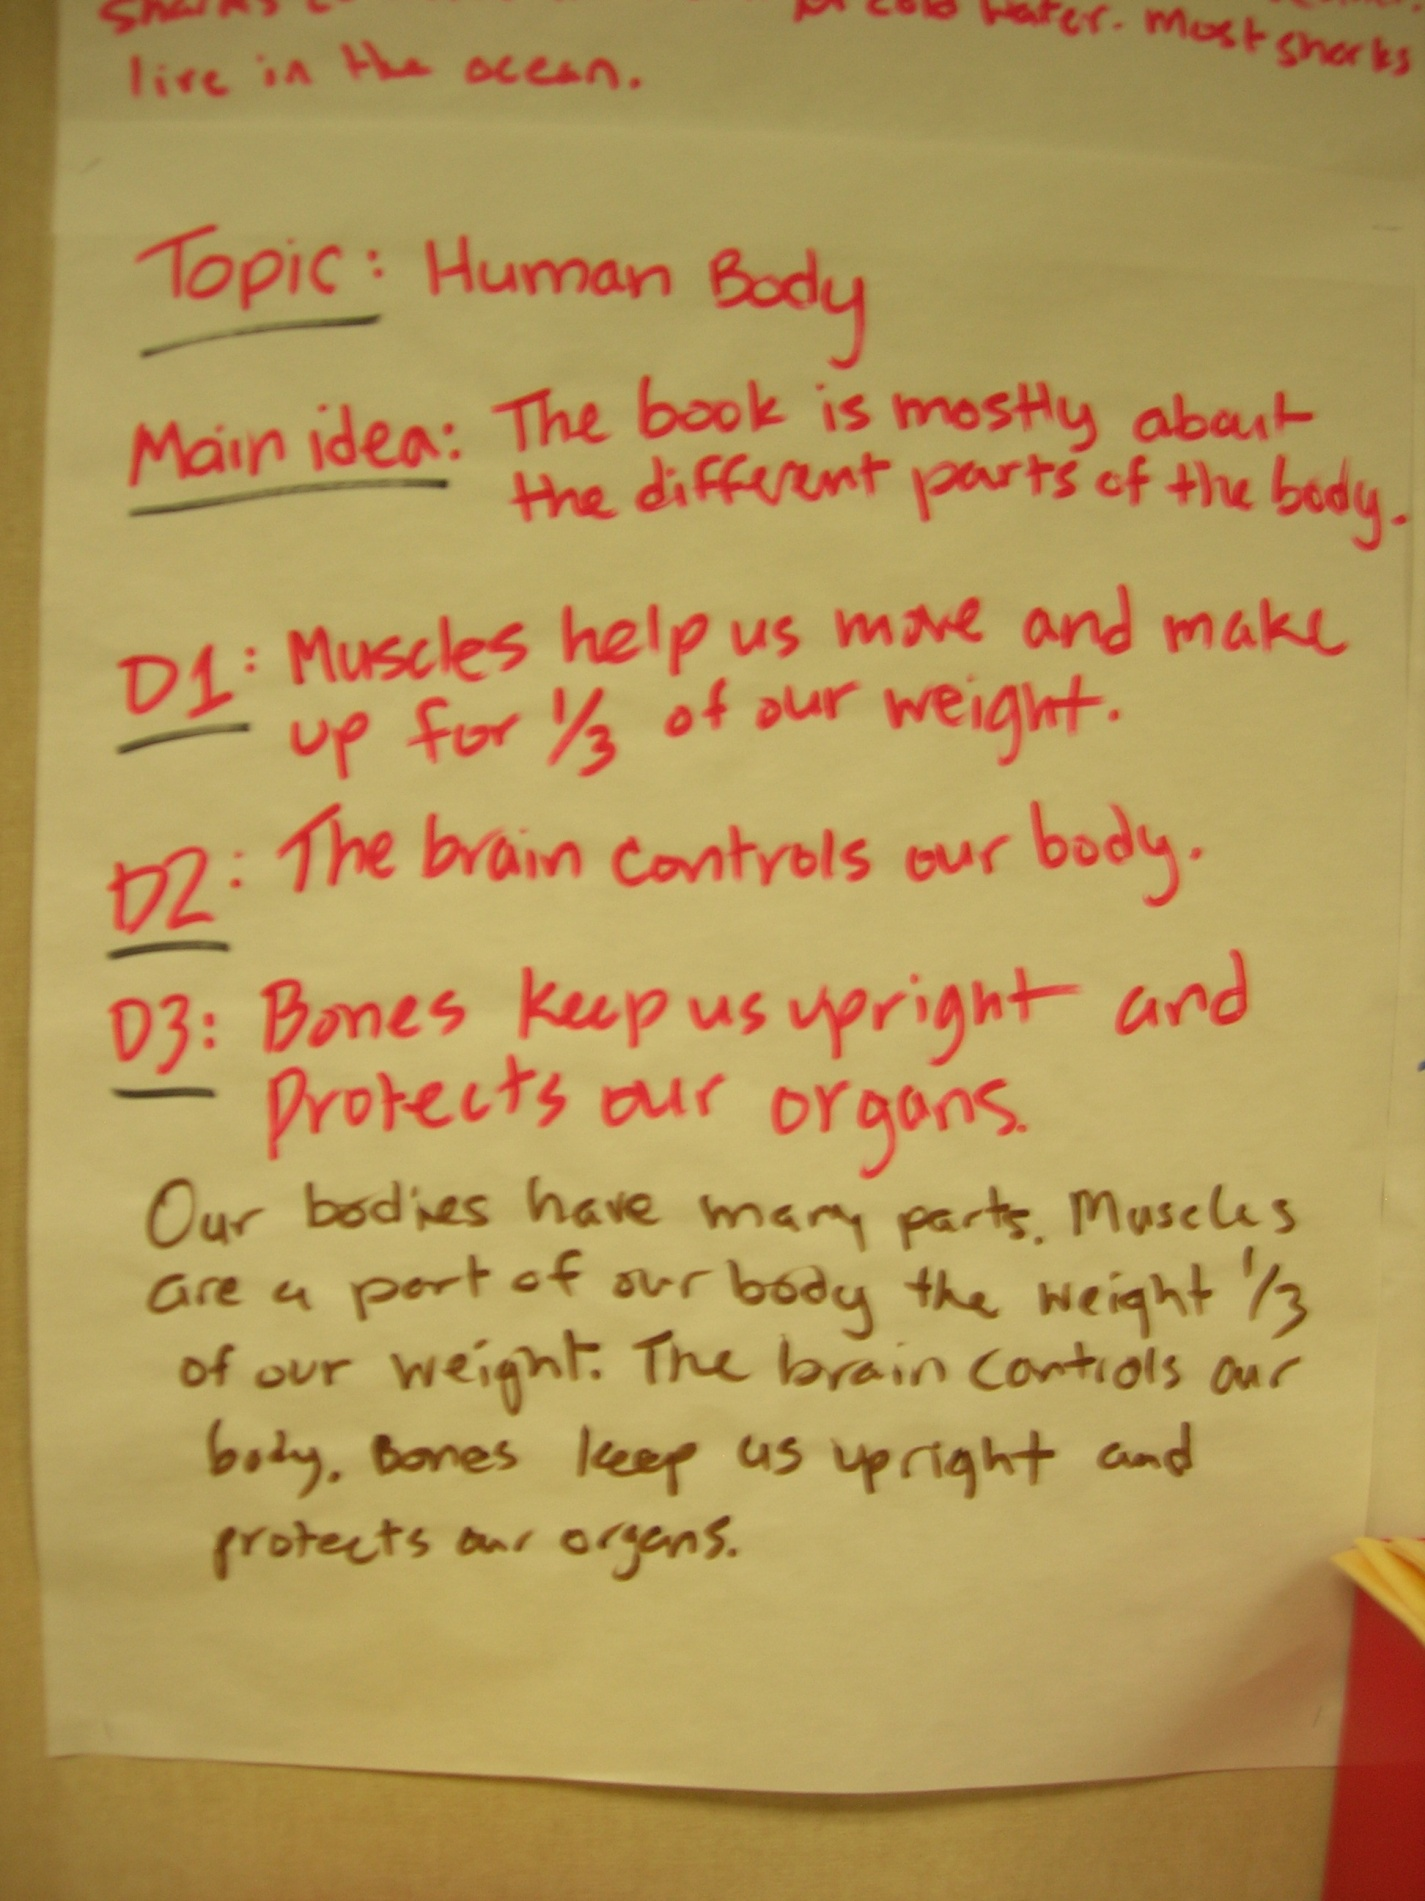 Sharks cold water. Most sharks
live in the ocean.
Topic: Human Body
Main idea: The book is mostly about
the different parts of the body.
D1: Muscles help us move and make
up for 1/3 of our weight.
D2: The brain controls our body.
D3: Bones keep us upright and
Protects our organs.
Our bodies have many parts. Muscles
are a part of our body the weight 1/3
of our weight. The brain controls our
body. Bones keep us upright and
protects our organs.